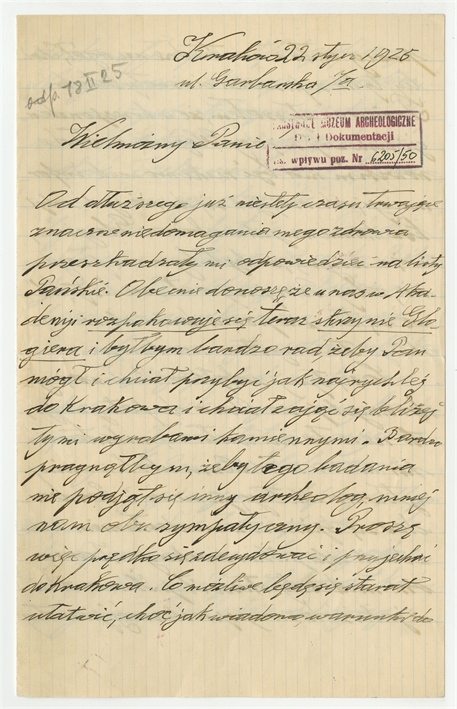 Kraków 22 stycz 1925
ul. Garbarska 7/II.
odp. 18 II 25
MUZEUM ARCHEOLOGICZNE
Dokumentacji
wpływu poz. Nr 6205/50
Wielmożny Panie
Od dłuższego już niestety czasu trwające
znaczne niedomagania mego zdrowia
przeszkadzały mi odpowiedzieć na listy
Pańskie. Obecnie donoszę, że u nas w Aka-
demji rozpakowuje się teraz skrzynie Glo-
giera i byłbym bardzo rad żeby Pan
mógł i chciał przybyć jak najrychlej
do Krakowa i chciał zająć się bliżej
tymi wyrobami kamiennymi. Bardzo
pragnąłbym, żeby tego badania
nie podjął się inny archeolog, mniej
nam obu sympatyczny. Proszę
więc prędko się zdecydować i przyjechać
do Krakowa. Co możliwe będę się starał
ułatwić, choć jak wiadomo warunki do